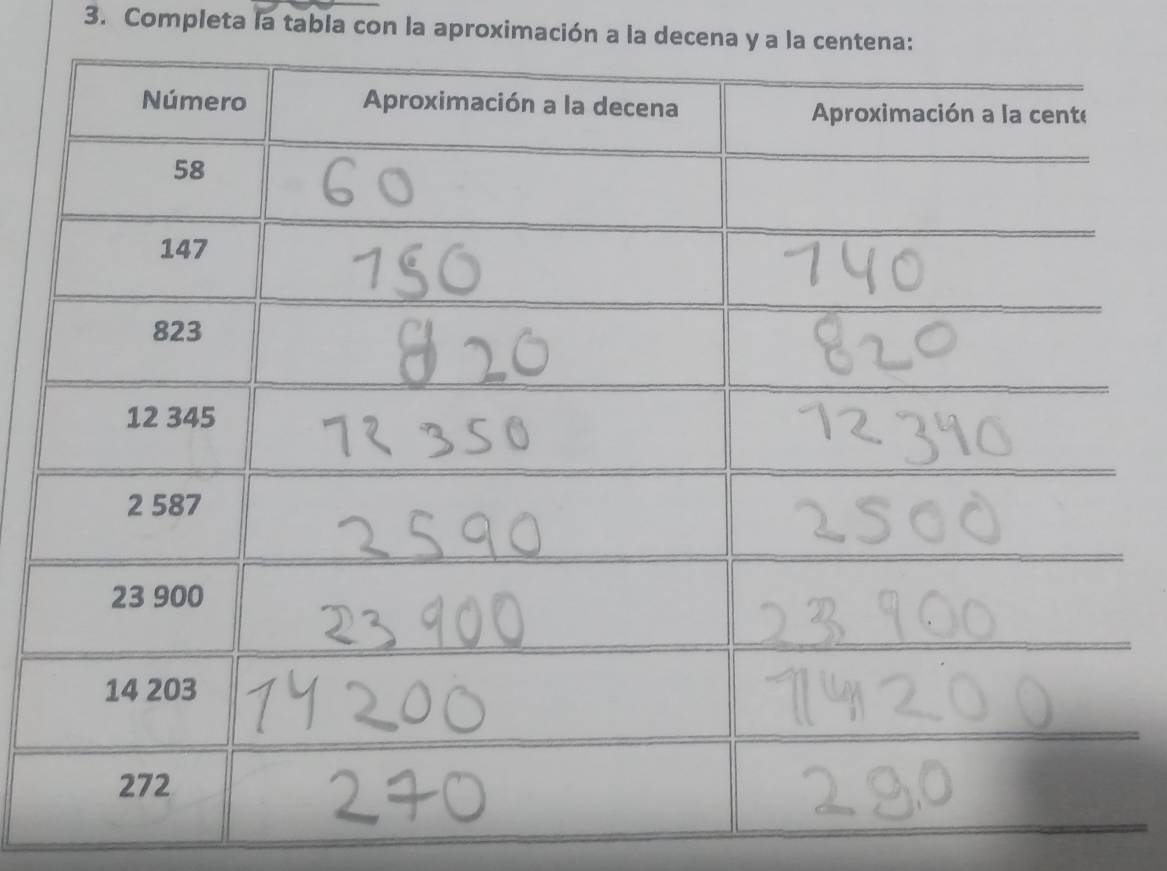 3. Completa la tabla con la aproximación a la decena y a la centena:
Número Aproximación a la decena Aproximación a la cente
58 60
147 150 140
823 820 820
12 345 12 350 12 340
2 587 2590 2500
23 900 23 900 23 900
14 203 14 200 14 200
272 270 290